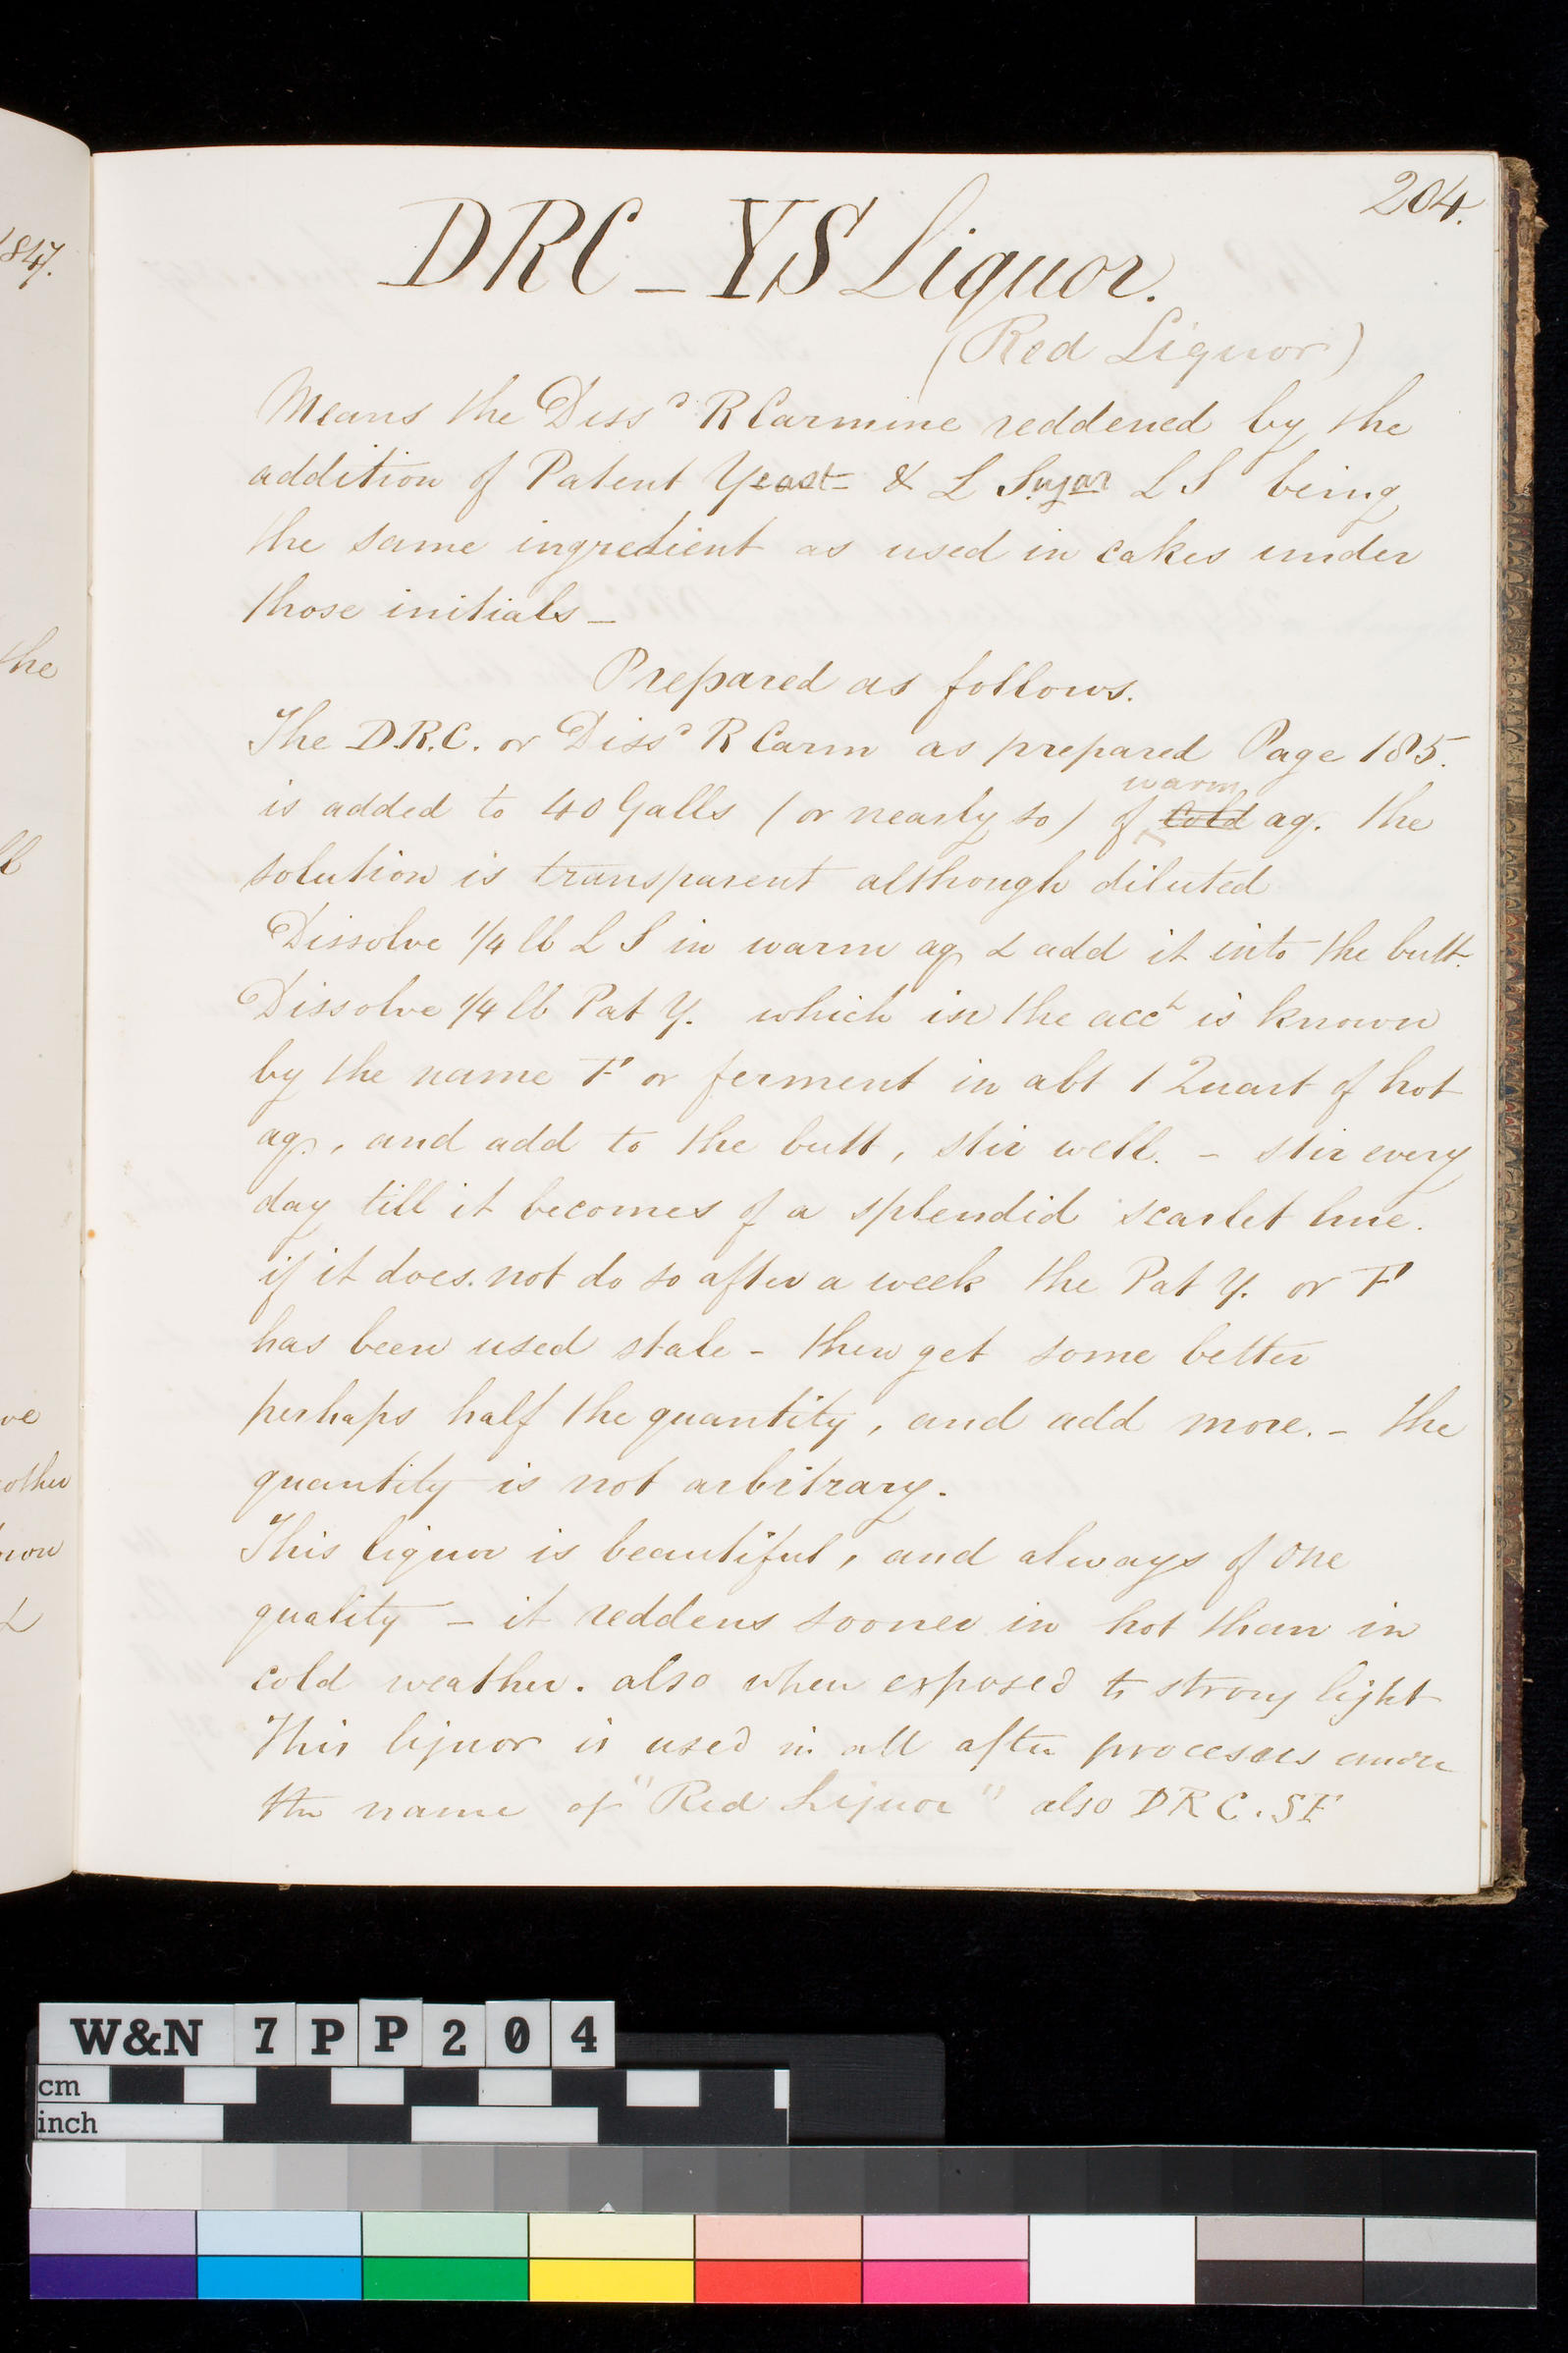 204.
DRC - YS Liquor.
(Red Liquor)
Means the Dissᵈ R Carmine reddened by the
addition of Patent Yeast & L Sugar L S being
the same ingredient as used in cakes under
those initials -
Prepared as follows.
The D.R.C. or Dissᵈ R Carm as prepared Page 185.
warm
is added to 40 Galls (or nearly so) of cold aq. the
solution is transparent although diluted
Dissolve 1/4 lb L S in warm aq & add it into the butt.
Dissolve 1/4 lb Pat Y. which in the accᵗ is known
by the name F or ferment in abt 1 Quart of hot
aq., and add to the butt, stir well. - stir every
day till it becomes of a splendid scarlet hue.
if it does not do so after a week the Pat Y. or F
has been used stale - then get some better
perhaps half the quantity, and add more. - the
quantity is not arbitrary.
This liquor is beautiful, and always of one
quality - it reddens sooner in hot than in
cold weather. also when exposed to strong light
This liquor is used in all after processes under
the name of "Red Liquor" also D R C. S F
1847.
the
ve
other
now
&
W&N 7PP204
cm
inch